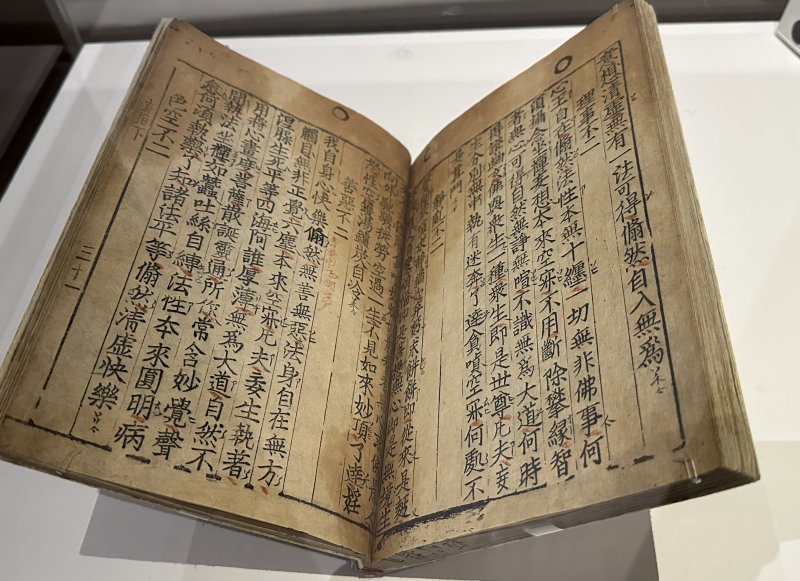 清虛無有一法可得翛然自入無爲
理事不二
心王自在翛然法性本無十纏一切無非佛事何
須攝念坐禪妄想本來空寂不用斷除攀緣智
者無心可得自然無諍無喧不識無爲大道何時
得證幽玄佛與衆生一種衆生即是世尊凡夫妄
生分別無中執有迷奔了達貪嗔空寂何處不
是眞門
靜亂不二
求餅餅即從來是麵
徒勞空過一生不見如來妙頂了達婬
慾性空鑊湯爐炭自冷
善惡不二
我自身心快樂翛然無善無惡法身自在無方
觸目無非正覺六塵本來空寂凡夫妄生執著
涅槃生死平等四海何誰厚薄無爲大道自然不
用將心畫度菩薩散誕靈通所作常含妙覺聲
聞執法坐禪如蠶吐絲自縛法性本來圓明病
愈何須執藥了知諸法平等翛然清虛快樂
色空不二
下
三十一